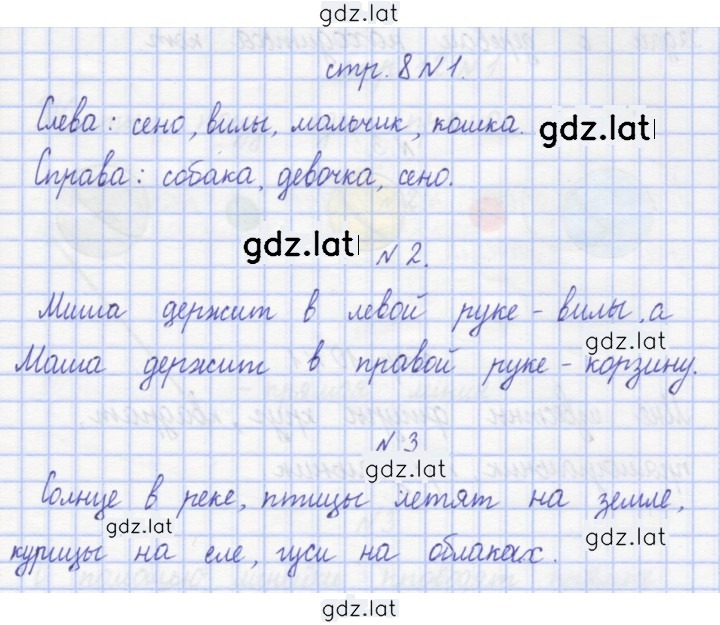 gdz.lat
стр. 8 N 1.
Слева: сено, вилы, мальчик, кошка.
gdz.lat
Справа: собака, девочка, сено.
gdz.lat
N 2.
Миша держит в левой руке - вилы, а
gdz.lat
Маша держит в правой руке - корзину.
N 3
gdz.lat
Солнце в реке, птицы летят на земле,
gdz.lat
gdz.lat
курицы на еле, гуси на облаках.
gdz.lat